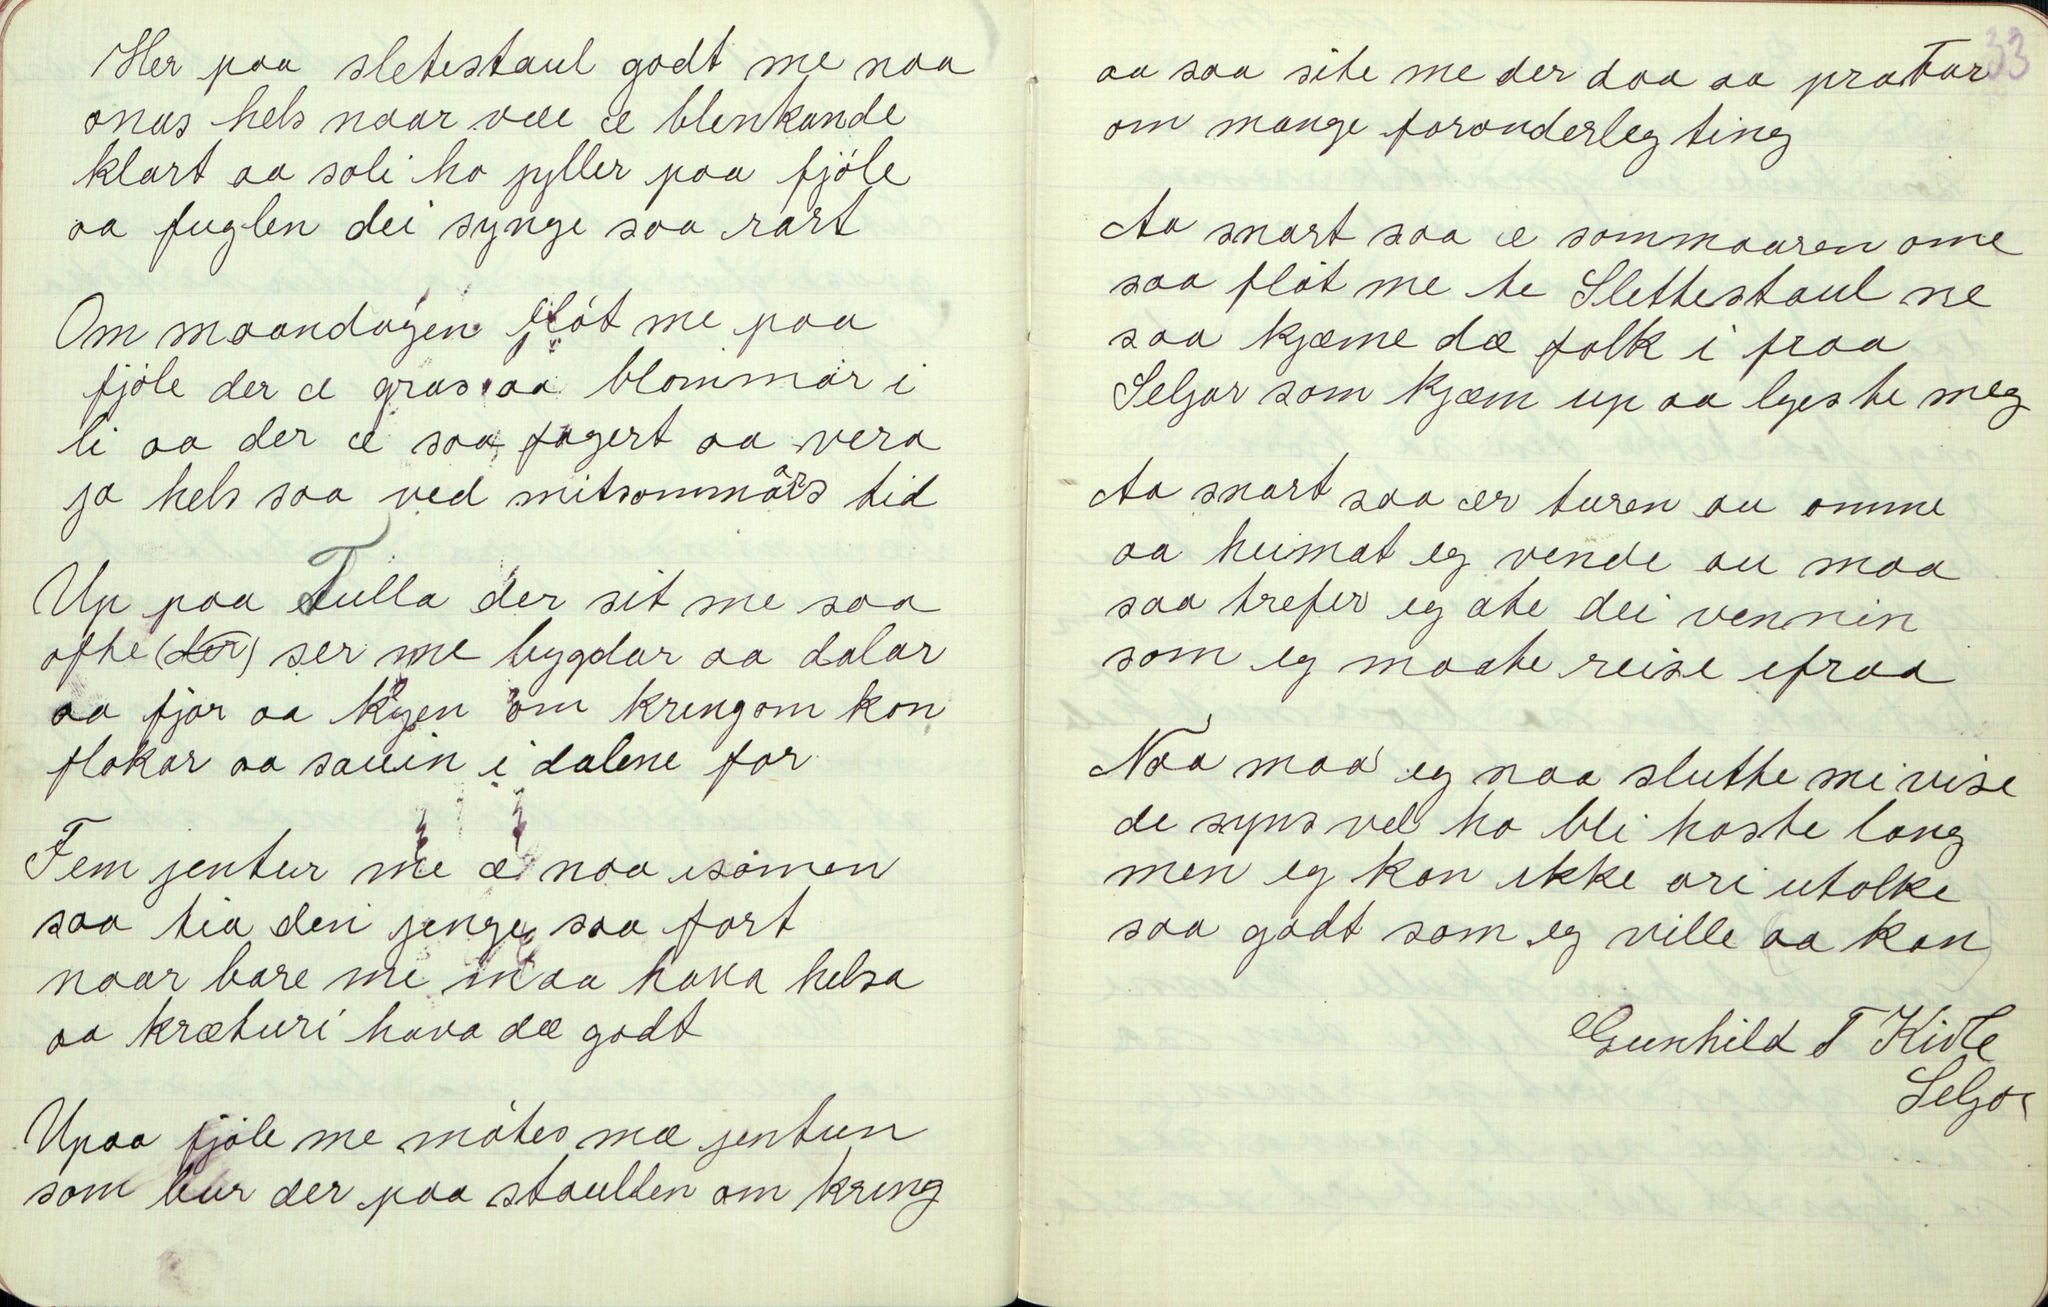 Her paa sletestaul godt me naa
onas hels naar væe æ blenkande
klart aa soli ho gyller paa fjöle
aa fuglen dei synge saa rart
Om maandagen flöt me paa
fjöle der æ gras aa blommar i
li aa der æ saa fagert aa vera
ja hels saa ved mitsommars tid
Up paa Tulla der sit me saa
ofte (der) ser me bygdar aa dalar
aa fjor aa kyen om kringom kon
flokar aa sauin i dalene for
Fem jentur me æ naa isamen
saa tia den jenge saa fort
naar bare me maa hava helsa
aa kræturi hava dæ godt
Upaa fjöle me mötes mæ jentun
som bur der paa staullen om kring
33
aa saa site me der daa aa pratar
om mange foronderleg ting
Aa snart saa æ sommaaren ome
saa flöt me te Slettestaul ne
saa kjæme dæ folk i fraa
Seljor som kjæm up aa lyes te meg
Aa snart saa ær turen au omme
aa heimat eg vende au maa
saa trefer eg ate dei vennin
som eg maate reise ifraa
Naa maa eg naa slutte mi vise
de syns vel ho bli haste lang
men eg kan ikke ori utolke
saa godt som eg ville (aa kan)
Gunhild T Kivle
Seljor